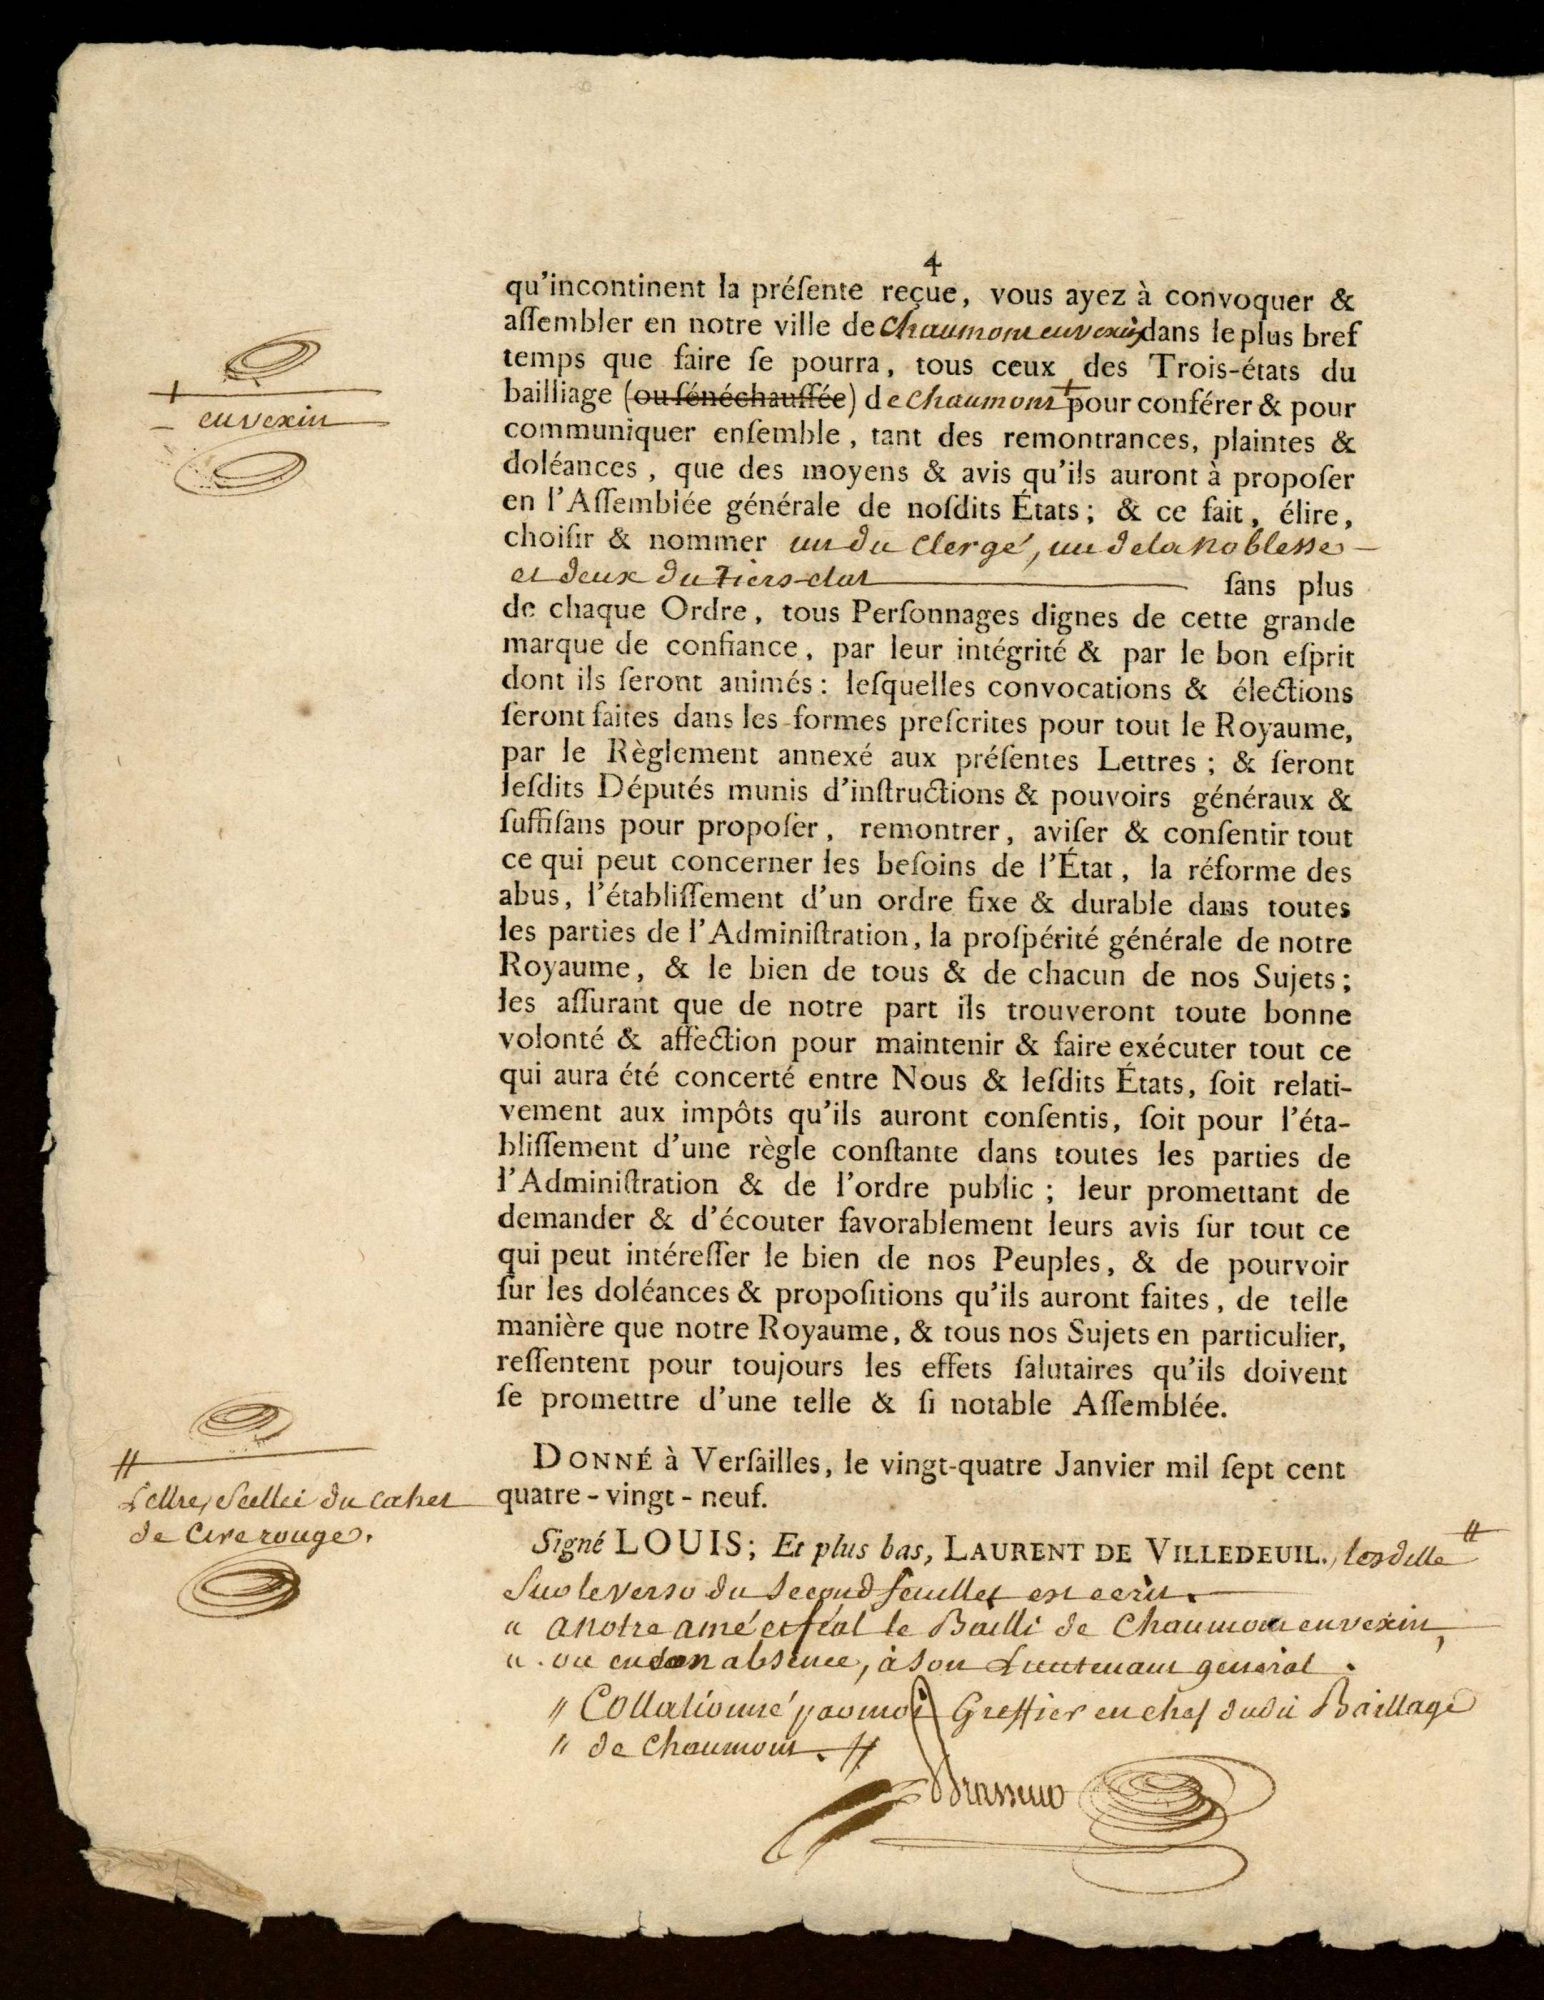 4
qu'incontinent la préſente reçue, vous ayez à convoquer &
aſſembler en notre ville de Chaumont en vexin dans le plus bref
temps que faire ſe pourra, tous ceux des Trois-états du
bailliage (ou ſénéchauſſée) de Chaumont + pour conférer & pour
+
en vexin
communiquer enſemble, tant des remontrances, plaintes &
doléances, que des moyens & avis qu'ils auront à propoſer
en l'Aſſemblée générale de noſdits États; & ce fait, élire,
choiſir & nommer un du Clergé, un de la noblesse
et deux du tiers-etat ſans plus
de chaque Ordre, tous Perſonnages dignes de cette grande
marque de confiance, par leur intégrité & par le bon eſprit
dont ils ſeront animés: leſquelles convocations & élections
ſeront faites dans les formes preſcrites pour tout le Royaume,
par le Règlement annexé aux préſentes Lettres; & ſeront
leſdits Députés munis d'inſtructions & pouvoirs généraux &
ſuffiſans pour propoſer, remontrer, aviſer & conſentir tout
ce qui peut concerner les beſoins de l'État, la réforme des
abus, l'établiſſement d'un ordre fixe & durable dans toutes
les parties de l'Adminiſtration, la proſpérité générale de notre
Royaume, & le bien de tous & de chacun de nos Sujets;
les aſſurant que de notre part ils trouveront toute bonne
volonté & affection pour maintenir & faire exécuter tout ce
qui aura été concerté entre Nous & leſdits États, ſoit relati-
vement aux impôts qu'ils auront conſentis, ſoit pour l'éta-
bliſſement d'une règle conſtante dans toutes les parties de
l'Adminiſtration & de l'ordre public; leur promettant de
demander & d'écouter favorablement leurs avis ſur tout ce
qui peut intéreſſer le bien de nos Peuples, & de pourvoir
ſur les doléances & propoſitions qu'ils auront faites, de telle
manière que notre Royaume, & tous nos Sujets en particulier,
reſſentent pour toujours les effets ſalutaires qu'ils doivent
ſe promettre d'une telle & ſi notable Aſſemblée.
DONNÉ à Verſailles, le vingt-quatre Janvier mil ſept cent
quatre-vingt-neuf.
Signé LOUIS; Et plus bas, LAURENT DE VILLEDEUIL., lesdittes //
//
Lettres, Scellé du cachet
de Cire rouge.
Sur le verso du Second feuillet est ecrit.
" a notre amé et féal le Bailli de Chaumont en vexin,
" ou en son absence, à son Lieutenant general.
" Collationné par moi Greffier en chef dudit Baillage
" de Chaumont. //